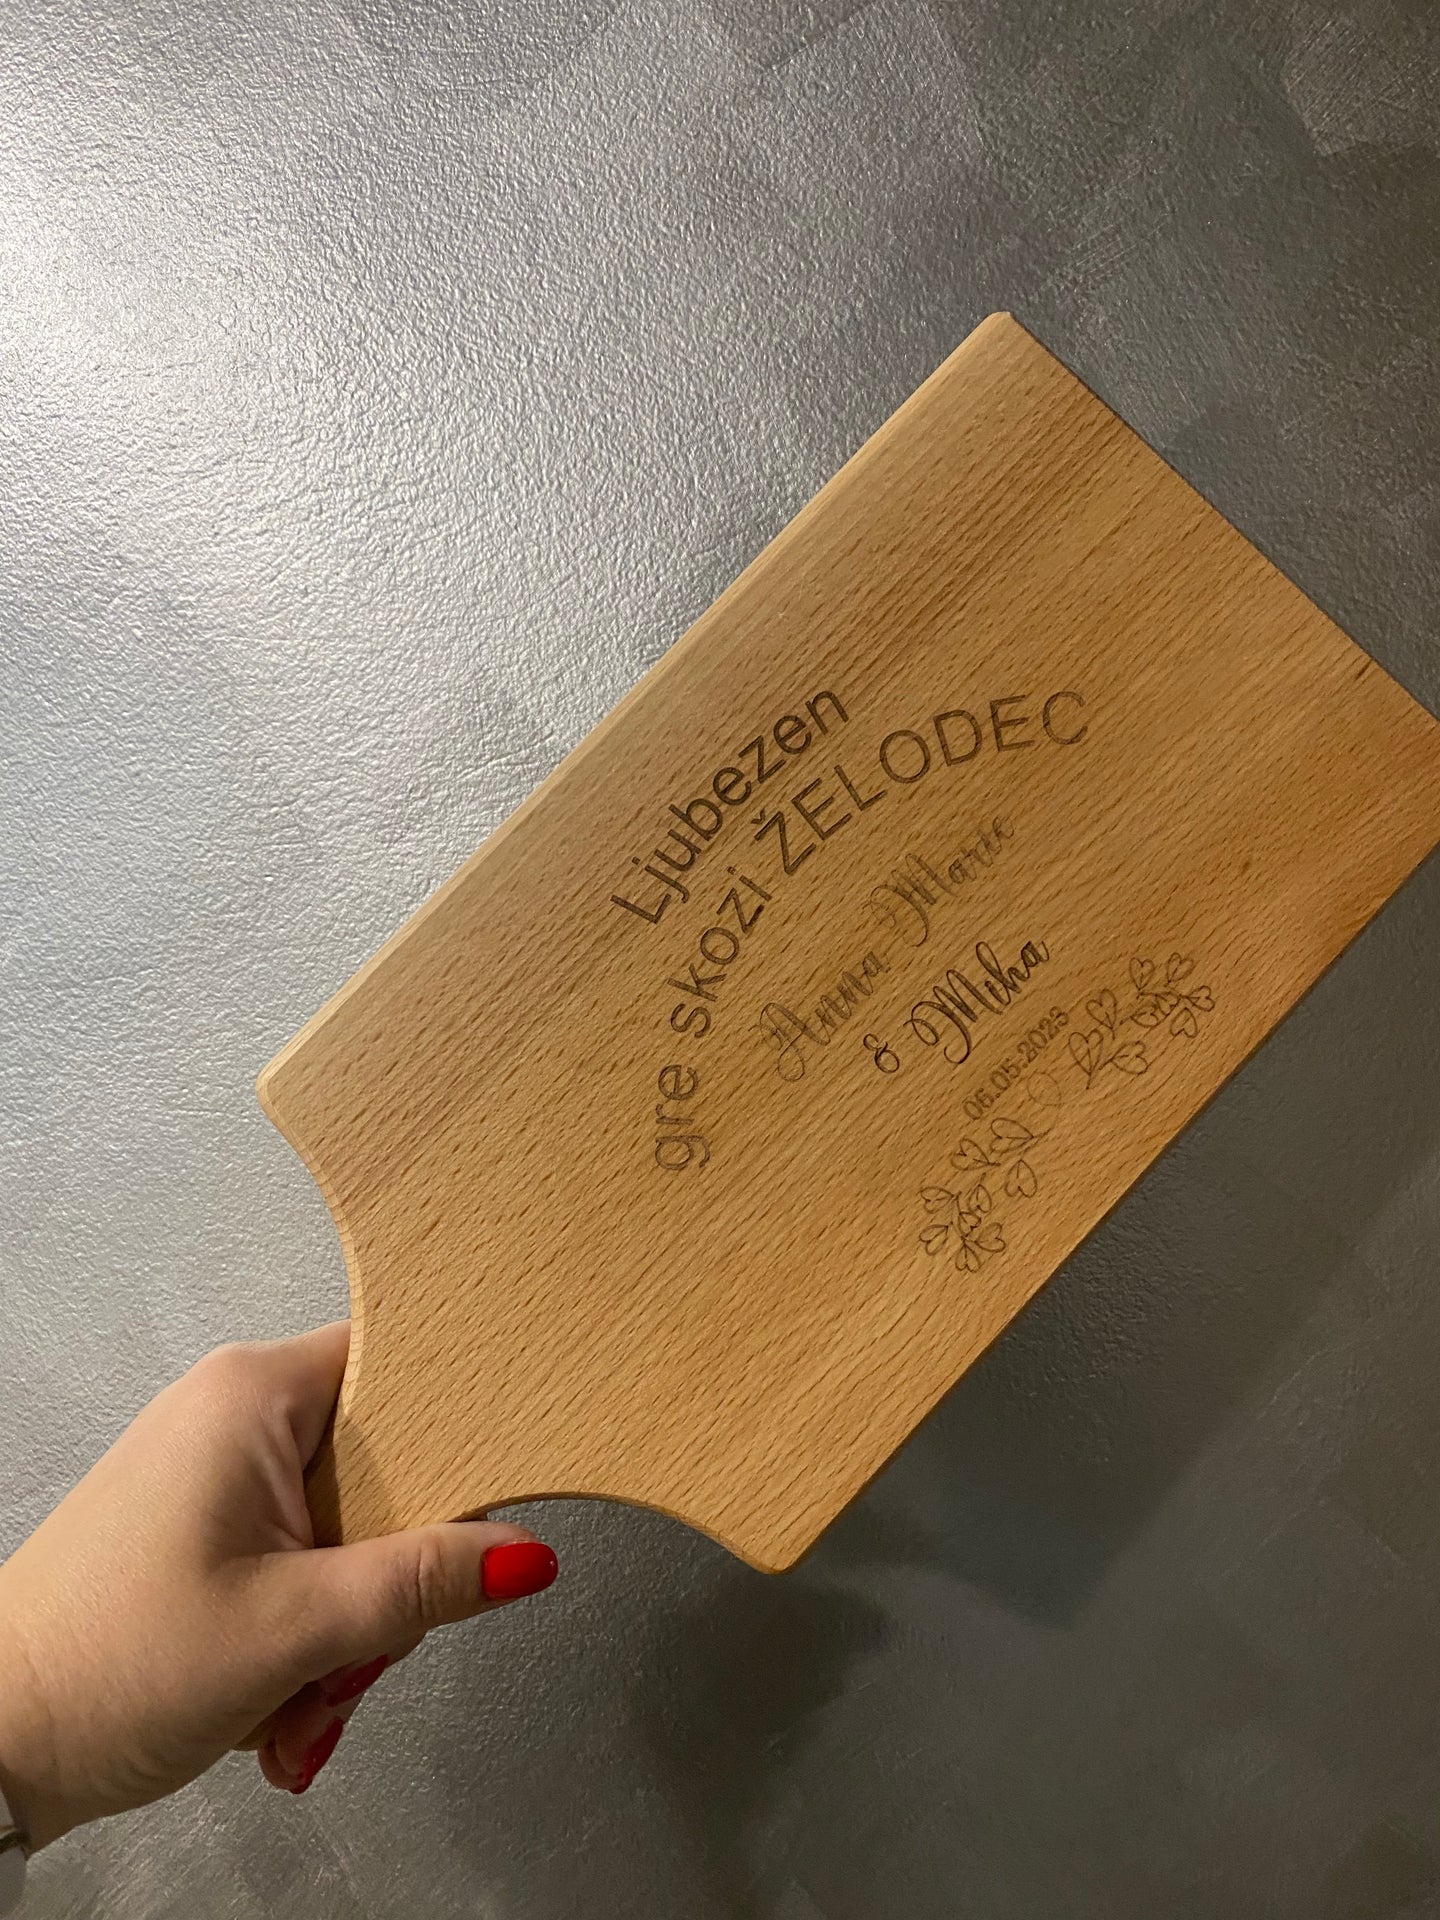 Ljubezen
gre skozi ŽELODEC
Anna Marie
& Miha
06.05.2023